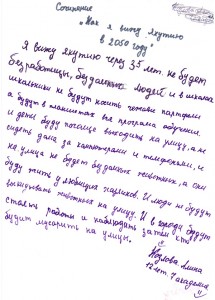 Сочинение
"Как я вижу якутию
в 2050 году"
Я вижу якутию через 35 лет. не будет
безработицы, будалных людей и в школах
школьники не будут носить тетради портфели
а будут в планшетах вся програма обучения.
и дети буду почаще выходить на улицу, а не
сидеть дома за компютерами и телефонами, и
на улице не будет бездомных животных, а они
буду жить у любящих хозяинов. И люди не будут
выкидывать животных на улицу. И в городе будут
стоять роботы и наблюдать за тем кто
будит мусорить на улицы.
Козлова Алина
12 лет 7 академия